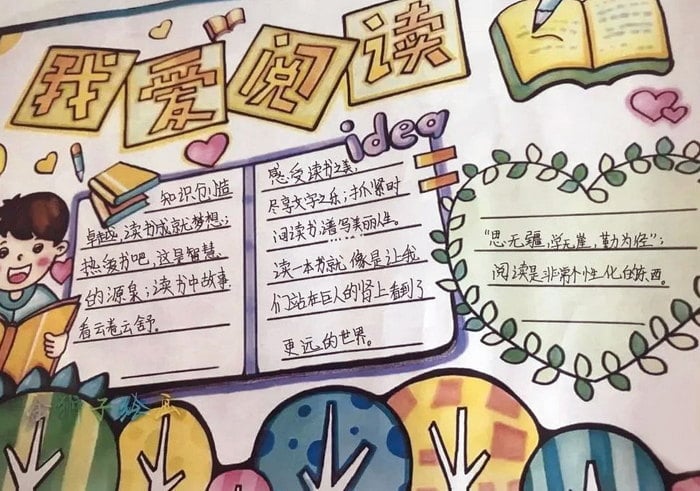 我爱阅读
idea
知识创造
卓越，读书成就梦想；
热爱书吧，这是智慧
的源泉；读书中故事，
看云卷云舒。
感受读书之美，
尽享文字之乐；抓紧时
间读书，谱写美丽人生。
读一本书就像是让我
们站在巨人的肩上看到了
更远的世界。
“思无疆，学无崖，勤为径”；
阅读是非常个性化的东西。